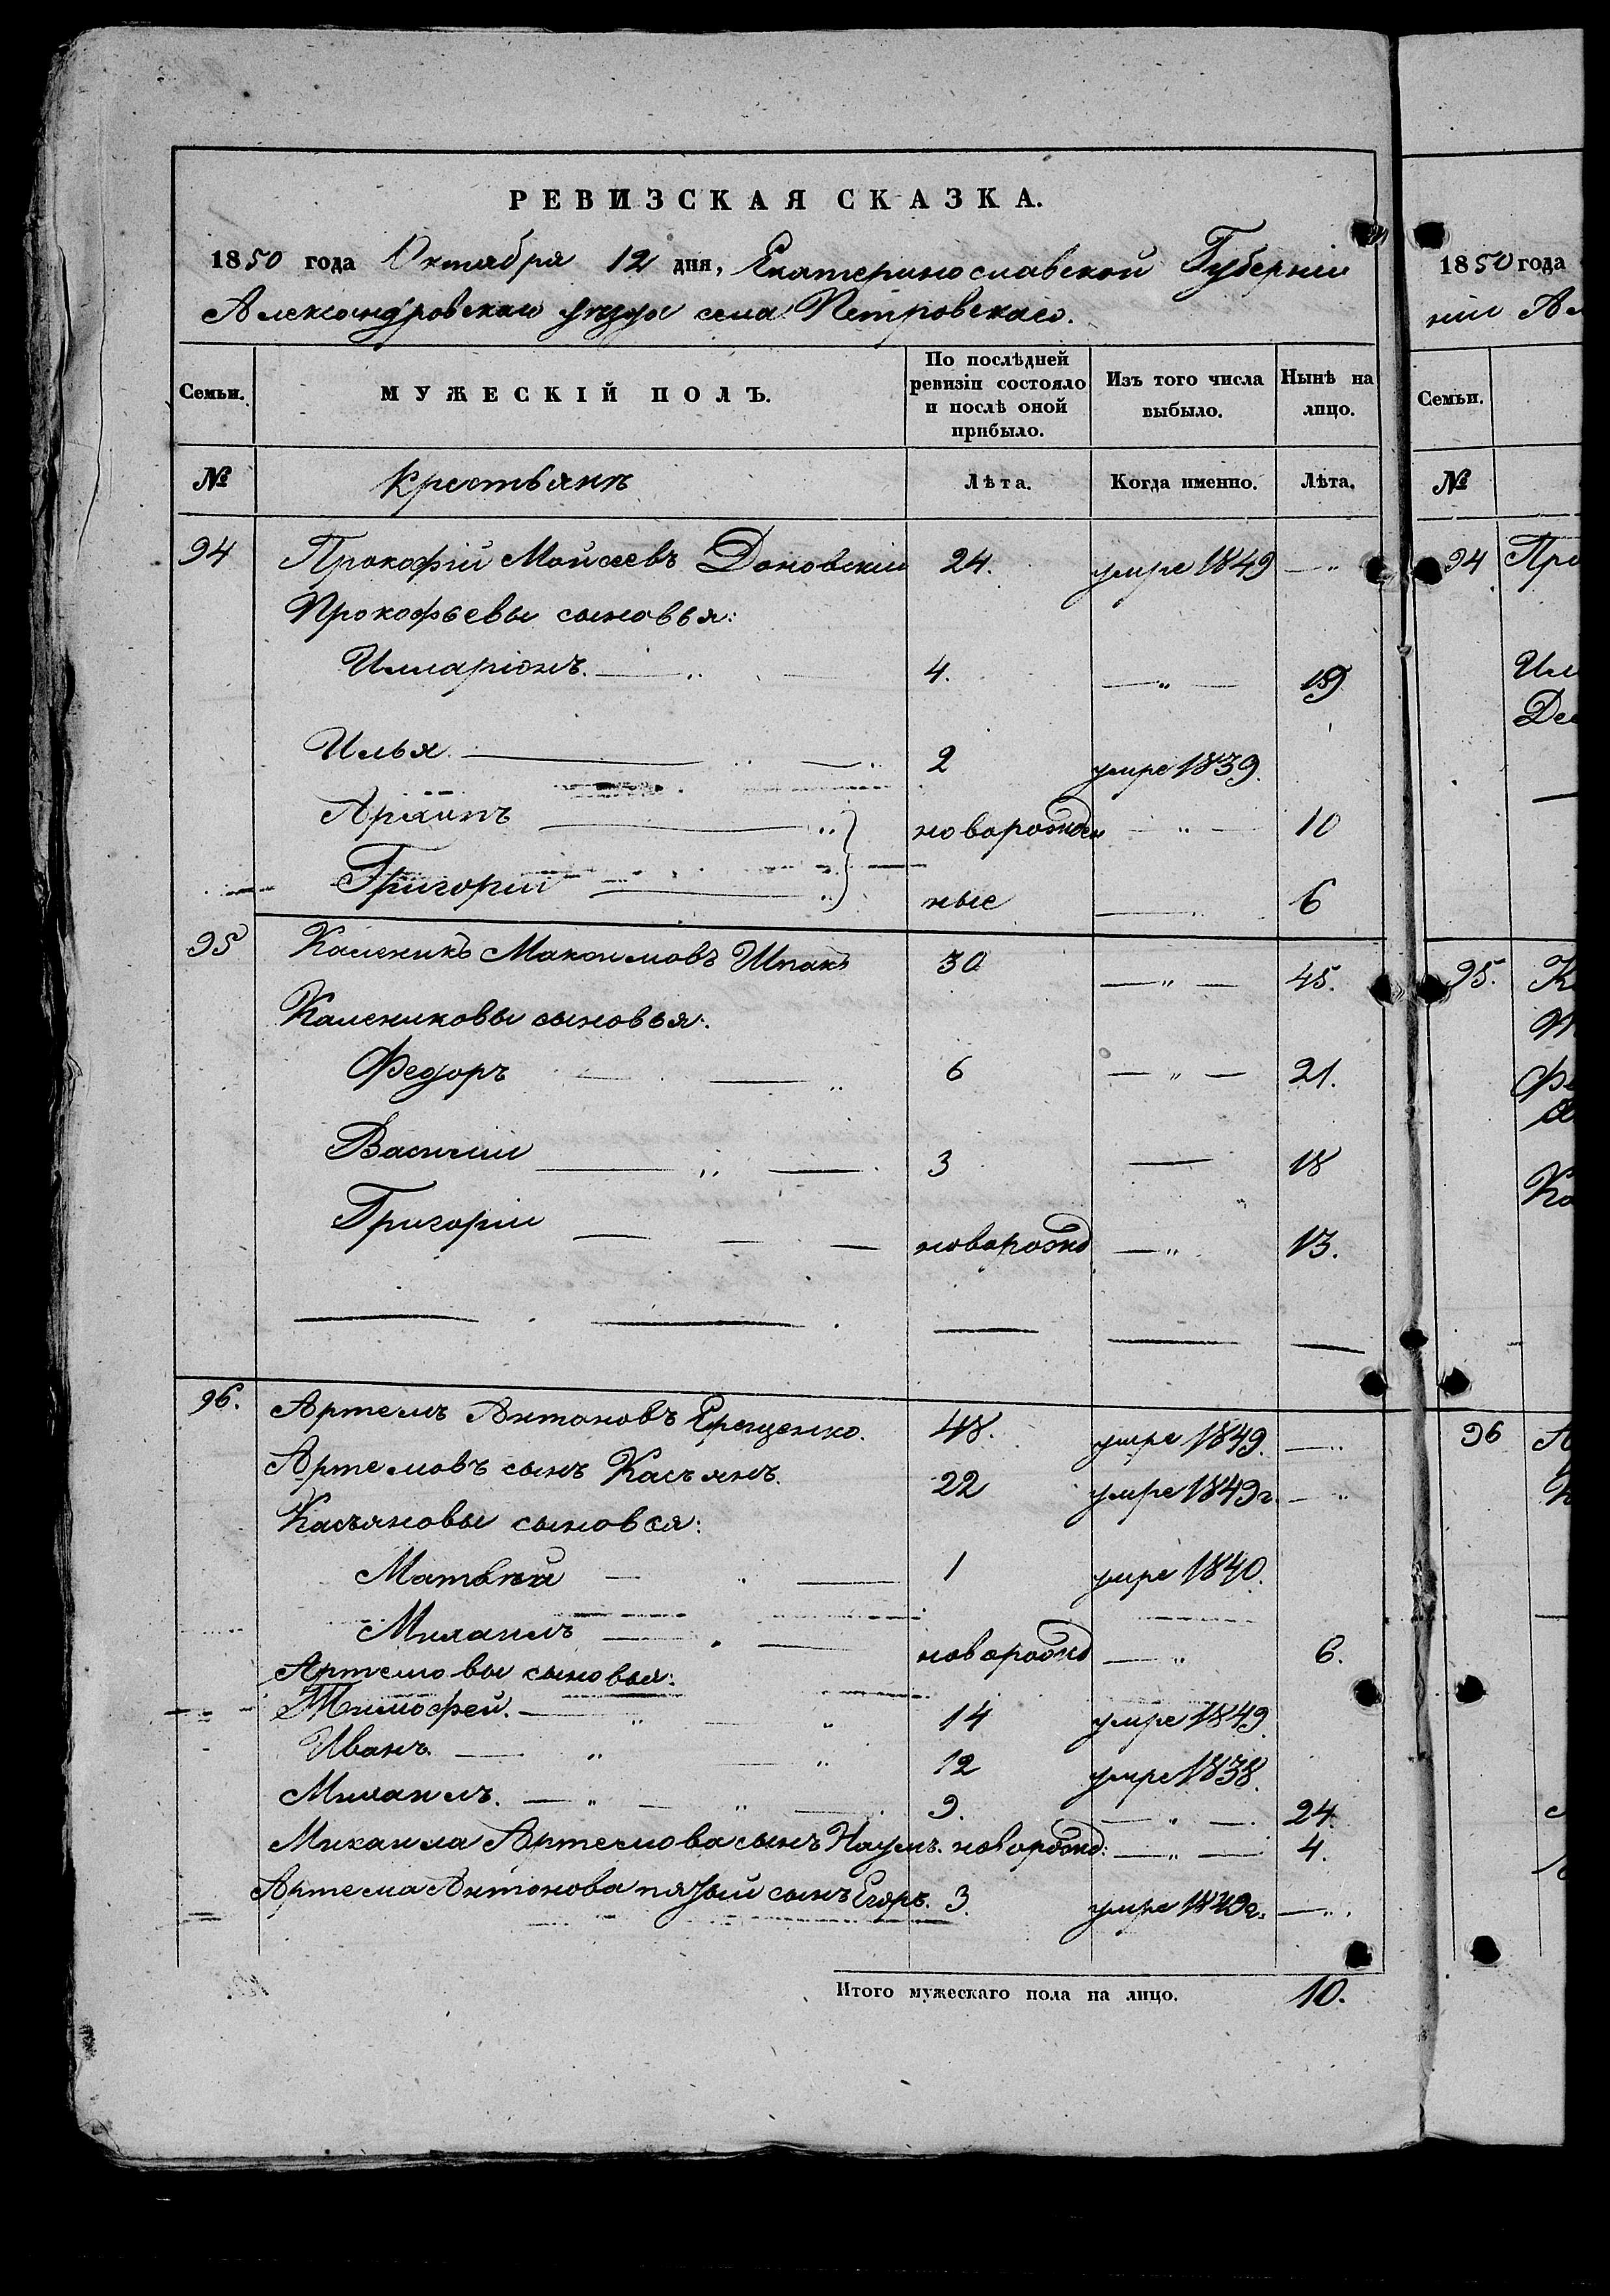 РЕВИЗСКАЯ СКАЗКА.
1850 года Октября 12 дня, Екатеринославской Губерніи
Александровскаго уѣзда села Петровскаго.
Семьи. МУЖЕСКІЙ ПОЛЪ. По послѣдней ревизіи состояло и послѣ оной прибыло. Изъ того числа выбыло. Нынѣ на лицо.
№ Крестьянъ Лѣта. Когда именно. Лѣта.
94 Прокофій Мойсеевъ Доновскій 24. умре 1849 — "
Прокофьевы сыновья:
Илларіонъ. 4. — " — 19
Илья 2 умре 1839.
Архипъ новорожден — " — 10
Григорій ные 6
95 Каленикъ Максимовъ Шпакъ 30 — " — 45.
Калениковы сыновья:
Федоръ 6 — " — 21.
Василій 3 — 18
Григорій новорожд — " 13.
96. Артемъ Антоновъ Ерещенко. 48. умре 1849. — "
Артемовъ сынъ Касьянъ. 22 умре 1849 г. — "
Касьяновы сыновья:
Матвѣй 1 умре 1840.
Михаилъ новорожд — " 6.
Артемовы сыновья:
Тимофей. 14 умре 1849
Иванъ 12 умре 1838.
Михаилъ. 9. — " — 24.
Михаила Артемова сынъ Наумъ. новорожд: — " — 4.
Артема Антонова пятый сынъ Егоръ. 3. умре 1849 г. — "
Итого мужескаго пола на лицо. 10.
1850 года
ніи Ал
Семьи.
№
94 Про
Ил
Де
95. К
Фе
Ка
96